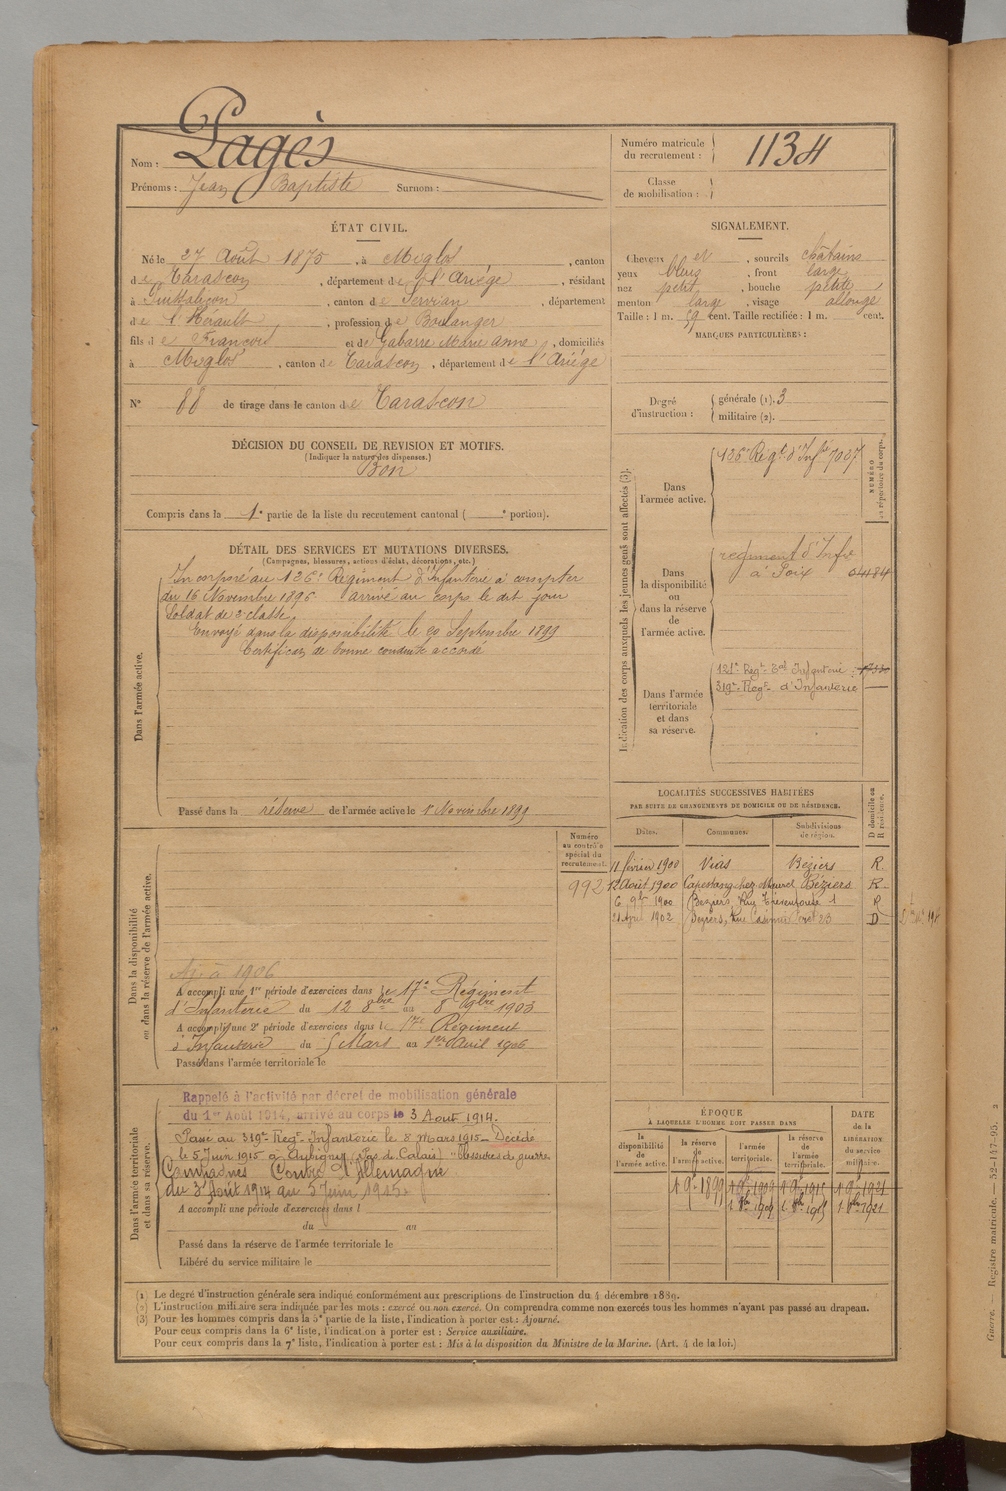 Nom : Pagès
Prénoms : Jean Baptiste Surnom :
Numéro matricule du recrutement : 1134
Classe de mobilisation :
ÉTAT CIVIL.
Né le 27 Août 1875, à Miglos, canton
de Tarascon, département de l'Ariège, résidant
à Puissalicon, canton de Servian, département
de l'Hérault, profession de Boulanger
fils de François et de Gabarre Marie Anne, domiciliés
à Miglos, canton de Tarascon, département de l'Ariège
N° 88 de tirage dans le canton de Tarascon
SIGNALEMENT.
Cheveux et, sourcils châtains
yeux bleus, front large
nez petit, bouche petite
menton large, visage allongé
Taille : 1 m. 59 cent. Taille rectifiée : 1 m. cent.
MARQUES PARTICULIÈRES :
Degré d'instruction : générale (1). 3
militaire (2).
DÉCISION DU CONSEIL DE REVISION ET MOTIFS.
(Indiquer la nature des dispenses.)
Bon
Compris dans la 1e partie de la liste du recrutement cantonal ( e portion).
DÉTAIL DES SERVICES ET MUTATIONS DIVERSES.
(Campagnes, blessures, actions d'éclat, décorations, etc.)
Dans l'armée active.
Incorporé au 126e Régiment d'Infanterie à compter
du 16 Novembre 1896 arrivé au corps le dit jour
Soldat de 2e classe
Envoyé dans la disponibilité le 20 Septembre 1899
Certificat de bonne conduite accordé
Passé dans la réserve de l'armée active le 1er Novembre 1899
Indication des corps auxquels les jeunes gens sont affectés (3).
NUMÉRO au répertoire du corps.
Dans l'armée active.
126e Régt d'Infie 7027
Dans la disponibilité ou dans la réserve de l'armée active.
régiment d'Infie
à Foix 04484
Dans l'armée territoriale et dans sa réserve.
121e Regt Tal Infanterie
319e Regt d'Infanterie
LOCALITÉS SUCCESSIVES HABITÉES
PAR SUITE DE CHANGEMENTS DE DOMICILE OU DE RÉSIDENCE.
Dates. Communes. Subdivisions de région. D domicile ou R résidence.
11 février 1900 Vias Béziers R.
12 Août 1900 Capestang chez Béziers R.
6 9bre 1900 Béziers, Rue 1 R
1902 Béziers, Rue 23 D
Numéro au contrôle spécial du recrutement.
992
Dans la disponibilité ou dans la réserve de l'armée active.
Aj. à 1906
A accompli une 1re période d'exercices dans le 17e Régiment
d'Infanterie du 12 8bre au 8 9bre 1903
A accompli une 2e période d'exercices dans le 17e Régiment
d'Infanterie du 5 Mars au 1er Avril 1906
Passé dans l'armée territoriale le
Dans l'armée territoriale et dans sa réserve.
Rappelé à l'activité par décret de mobilisation générale
du 1er Août 1914, arrivé au corps le 3 Août 1914.
Passé au 319e Regt Infanterie le 8 Mars 1915 – Décédé
le 5 Juin 1915 à Aubigny, (Pas de Calais) "Blessures de guerre
Campagnes Contre l'Allemagne
du 3 Août 1914 au 5 Juin 1915
A accompli une période d'exercices dans l
du au
Passé dans la réserve de l'armée territoriale le
Libéré du service militaire le
ÉPOQUE
À LAQUELLE L'HOMME DOIT PASSER DANS
la disponibilité de l'armée active. la réserve de l'armée active. l'armée territoriale. la réserve de l'armée territoriale.
DATE de la LIBÉRATION du service militaire.
1 9e 1899 1 9e 1909 1 9e 1915 1 9e 1921
1 8bre 1909 1 8bre 1915 1 8bre 1921
(1) Le degré d'instruction générale sera indiqué conformément aux prescriptions de l'instruction du 4 décembre 1889.
(2) L'instruction militaire sera indiquée par les mots : exercé ou non exercé. On comprendra comme non exercés tous les hommes n'ayant pas passé au drapeau.
(3) Pour les hommes compris dans la 5e partie de la liste, l'indication à porter est : Ajourné.
Pour ceux compris dans la 6e liste, l'indication à porter est : Service auxiliaire.
Pour ceux compris dans la 7e liste, l'indication à porter est : Mis à la disposition du Ministre de la Marine. (Art. 4 de la loi.)
Guerre. — Registre matricule. — 52-147-95. 2